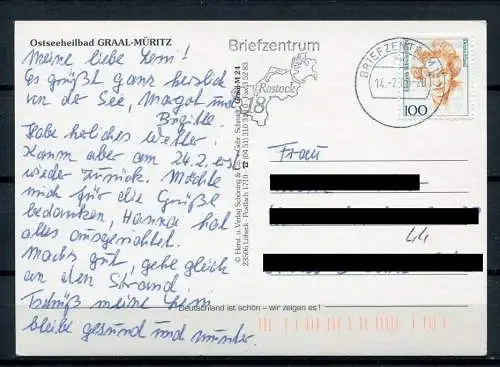 Ostseeheilbad GRAAL-MÜRITZ
Meine liebe Leni!
Es grüßt ganz herzlich
von der See, Margot und
Brigitte.
Habe herliches Wetter.
Komm aber am 24.2. erst
wieder zurück. Möchte
mich für die Grüße
bedanken, Hanna hat
alles ausgerichtet.
Machs gut, gehe gleich
an den Strand.
Tschüß meine Leni
bleibe gesund und munter.
© Horst u. Verlag Schöning & Co. + Gebr. Schmidt
23506 Lübeck · Postfach 1710
Graal-M 24
Briefzentrum
Rostock
18
BRIEFZENTRUM
14.-2.
100
Frau
44
Deutschland ist schön – wir zeigen es!